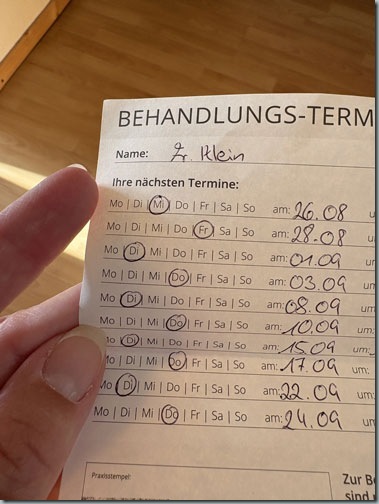 BEHANDLUNGS-TERM
Name: Fr. Klein
Ihre nächsten Termine:
Mo | Di | Mi | Do | Fr | Sa | So am: 26.08 u
Mo | Di | Mi | Do | Fr | Sa | So am: 28.08 u
Mo | Di | Mi | Do | Fr | Sa | So am: 01.09 u
Mo | Di | Mi | Do | Fr | Sa | So am: 03.09 um
Mo | Di | Mi | Do | Fr | Sa | So am: 08.09 um
Mo | Di | Mi | Do | Fr | Sa | So am: 10.09 um:
Mo | Di | Mi | Do | Fr | Sa | So am: 15.09 um:
Mo | Di | Mi | Do | Fr | Sa | So am: 17.09 um:
Mo | Di | Mi | Do | Fr | Sa | So am: 22.09 um:
Mo | Di | Mi | Do | Fr | Sa | So am: 24.09 um:
Praxisstempel:
Zur Be
sind